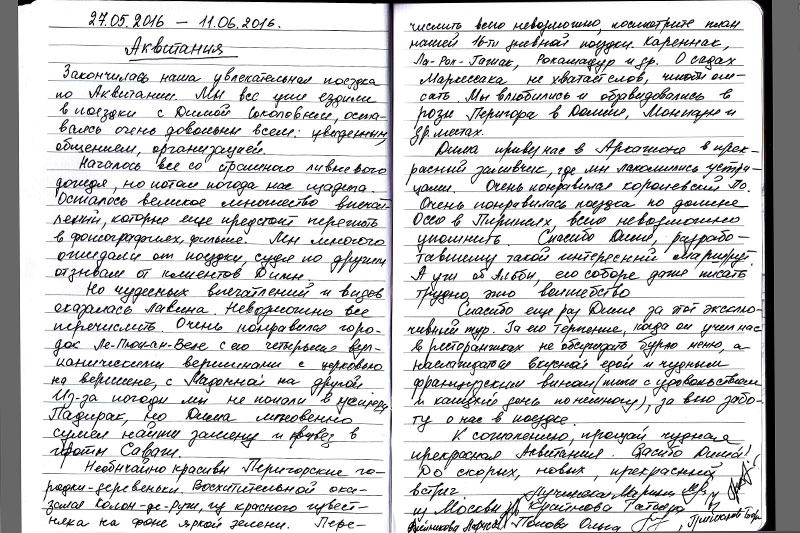 27.05.2016 – 11.06.2016.
Аквитания
Закончилась наша увлекательная поездка
по Аквитании. Мы все уже ездили
в поездки с Димой Соколовым, оста-
вались очень довольны всем: увиденным,
общением, организацией.
Началось все со страшного ливневого
дождя, но потом погода нас щадила.
Осталось великое множество впечат-
лений, которые еще предстоит пережить
в фотографиях, фильме. Мы многого
ожидали от поездки, судя по другим
отзывам от клиентов Димы.
Но чудесных впечатлений и видов
оказалась лавина. Невозможно все
перечислить. Очень понравился горо-
док Ле-Пюи-ан-Веле с его четырьмя вул-
каническими вершинами с церковью
на вершине, с Мадонной на другой
Из-за погоды мы не попали в пещеру
Падирак, но Дима мгновенно
сумел найти замену и привез в
гроты
Необычайно красивы Перигорские го-
родки-деревеньки. Восхитительной ока-
залась Колон-ле-Руж, из красного извест-
няка на фоне яркой зелени. Пере-
числить всего невозможно, посмотрите план
нашей 16-ти дневной поездки. Кареннак,
Ла-Рок-Гажак, Рокамадур и др. О садах
Маркессака не хватает слов, чтобы опи-
сать. Мы влюбились и обзавидовались в
розы Перигора в Домме, Монпазье и
др. местах.
Дима привез нас в Аркашоне в прек-
расный заливчик, где мы лакомились устри-
цами. Очень понравился королевский По.
Очень понравилась поездка по долине
Оссо в Пиринеях, всего невозможно
упомнить. Спасибо Диме, разрабо-
тавшему такой интересный маршрут.
А уж об Альби, его соборе даже писать
трудно, это волшебство
Спасибо еще раз Диме за этот эксклю-
зивный тур. За его терпение, когда он учил нас
в ресторанчиках не обсуждать бурно меню, а
наслаждаться вкусной едой и чудным
французским вином (пили с удовольствием
и каждый день понемногу), за его забо-
ту о нас в поездке.
К сожалению, прощай чудная
прекрасная Аквитания. Спасибо Дима!
До скорых, новых, прекрасных
встреч Марина
из Москвы Татьяна
Лариса Попова Ольга